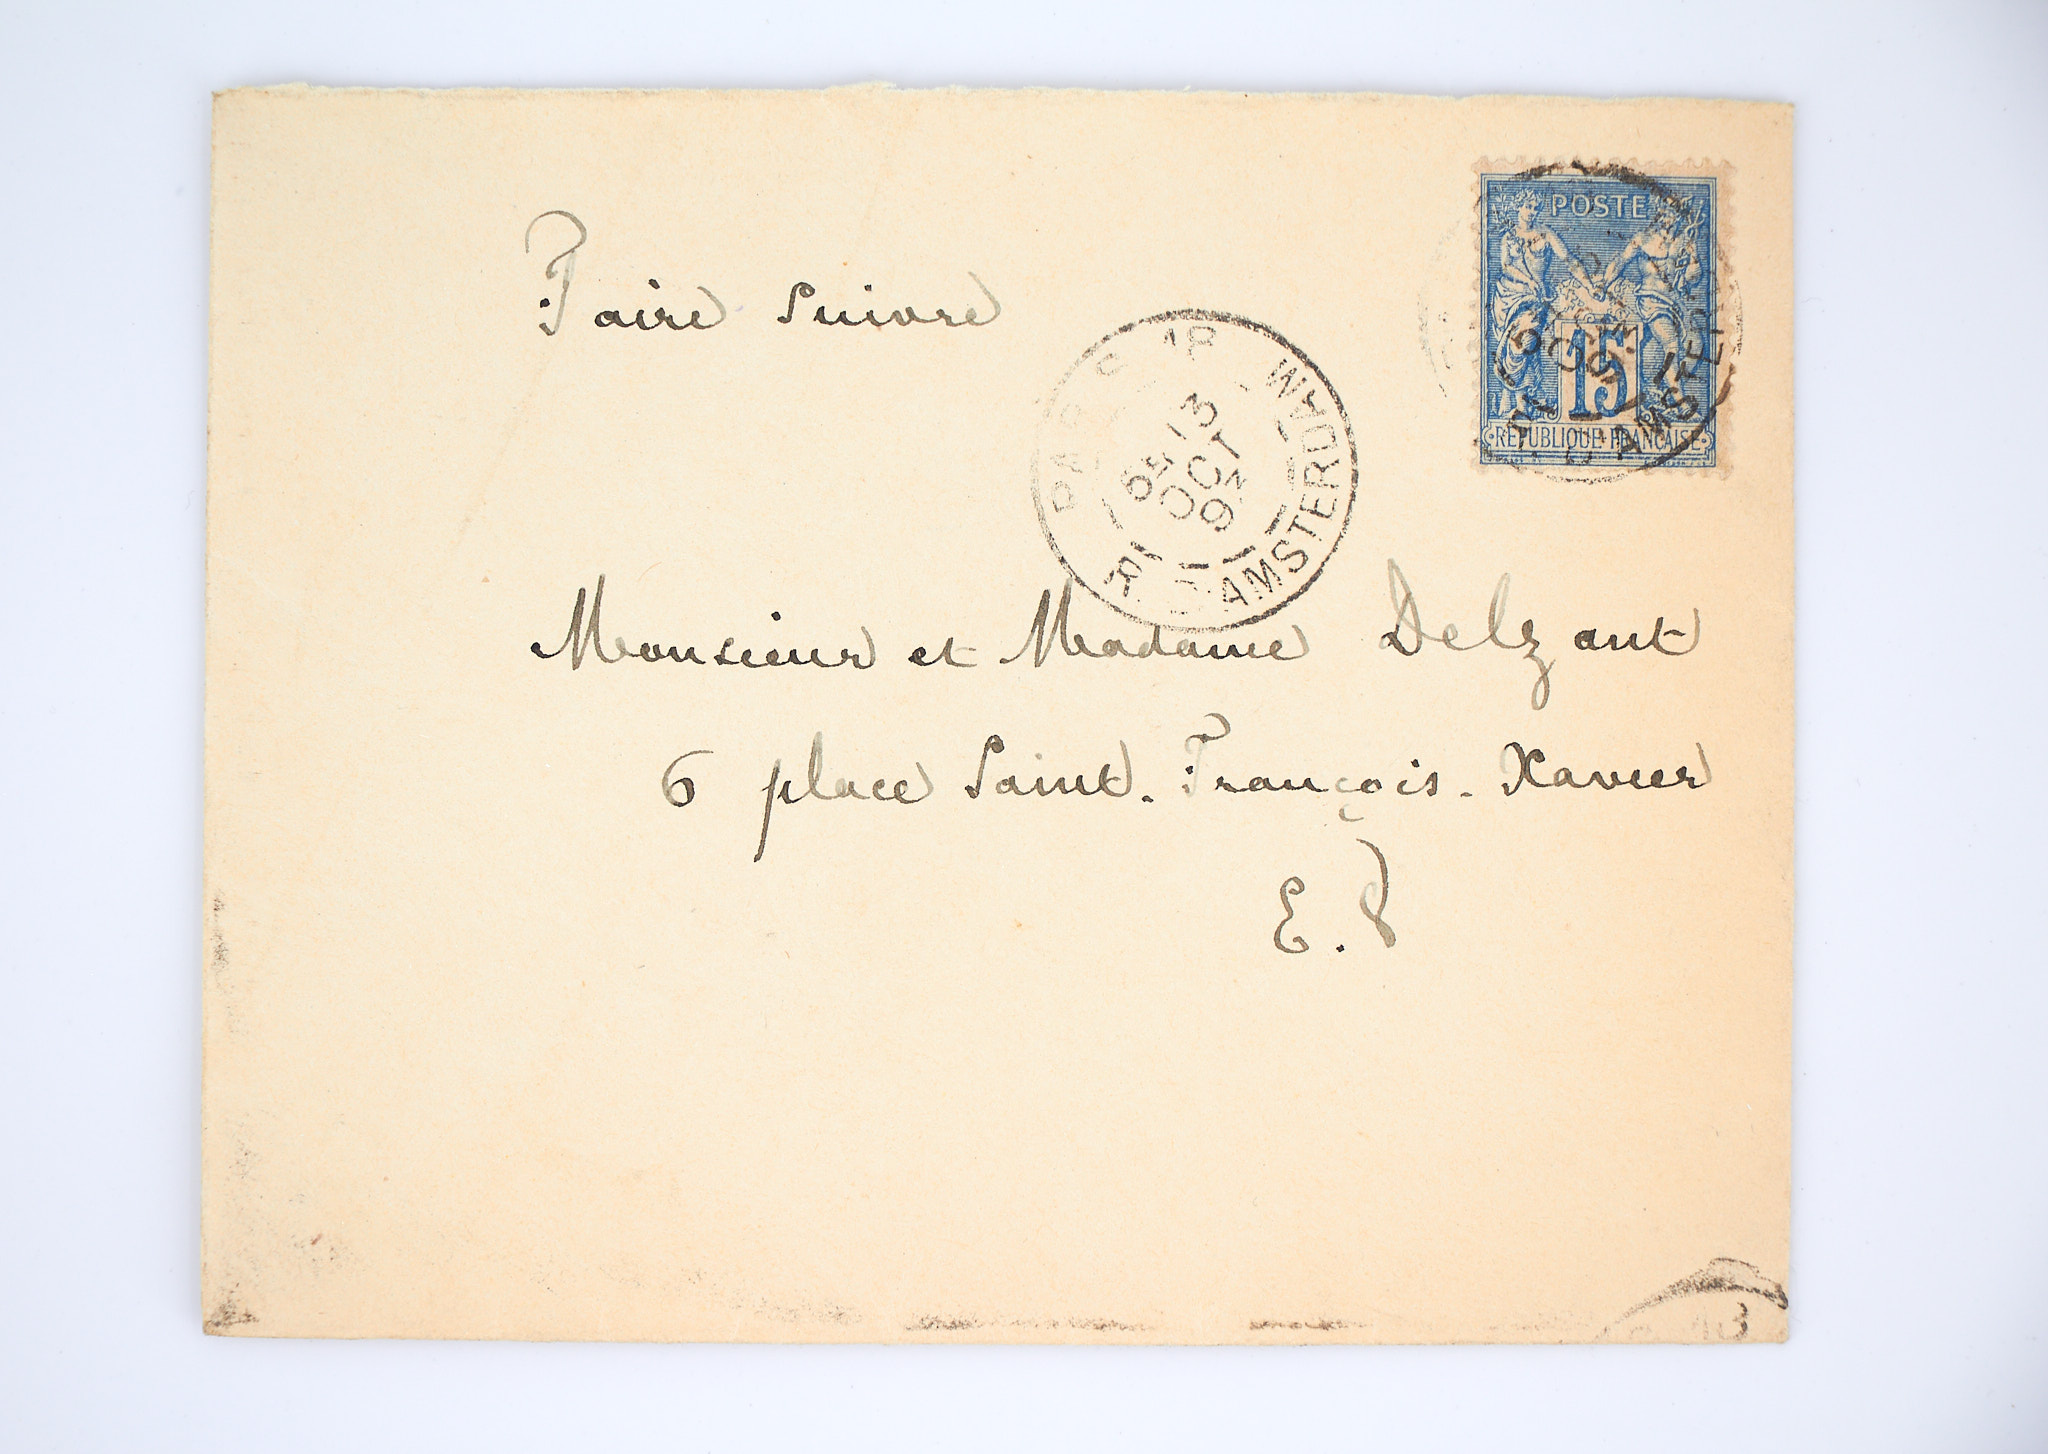 Faire suivre
POSTE
15
REPUBLIQUE FRANÇAISE
R. D'AMSTER
PARIS
13
OCT
93
R. D'AMSTERDAM
Monsieur et Madame Delzant
6 place Saint-François-Xavier
E.